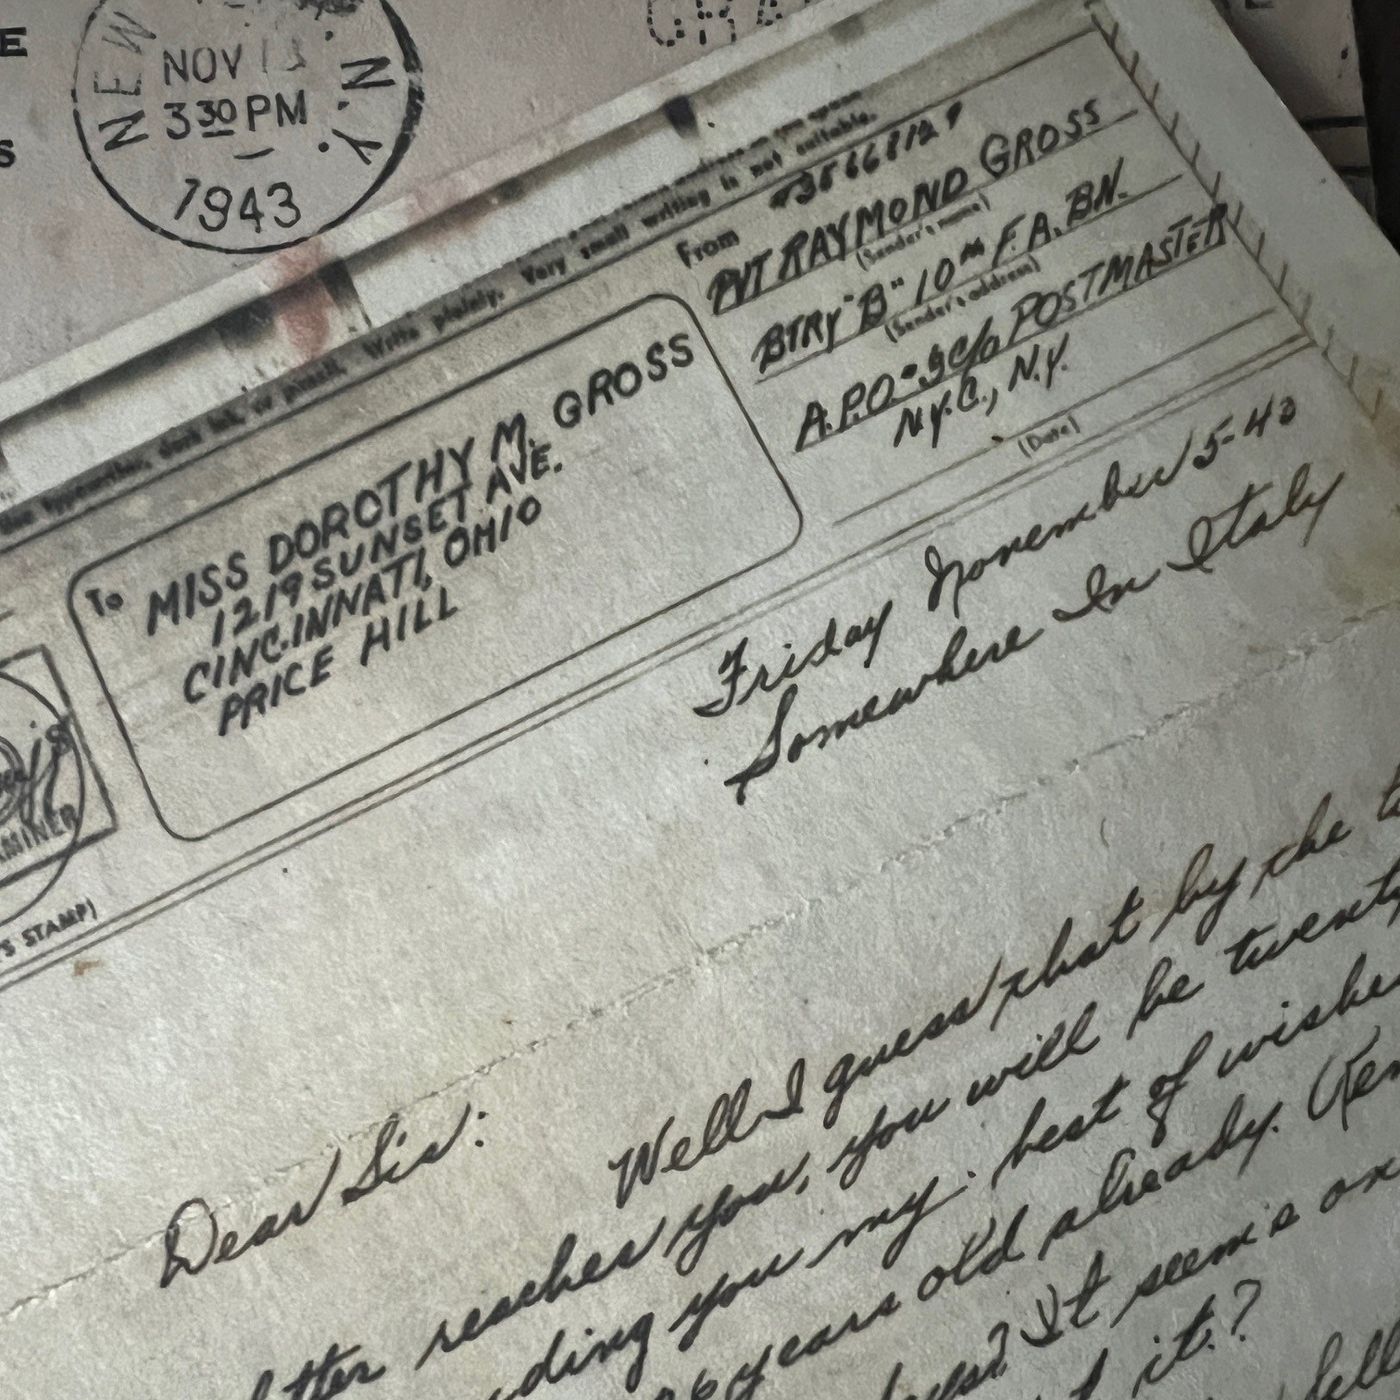 NEW N.Y.
NOV
3 30 PM
1943
E
S
use typewriter, dark ink, or pencil. Write plainly. Very small writing is not suitable.
From
PVT RAYMOND GROSS
(Sender's name)
BTRY "B" 10TH F.A. BN.
(Sender's address)
A.P.O. #3 c/o POSTMASTER
N.Y.C., N.Y.
(Date)
To MISS DOROTHY M. GROSS
1219 SUNSET AVE.
CINCINNATI, OHIO
PRICE HILL
AMINER
'S STAMP)
Friday November 5-43
Somewhere In Italy
Dear Sis:
Well I guess that by the t
tter reaches you, you will be twenty
ding you my best of wishe
years old already. Rem
days? It seems as
t it?